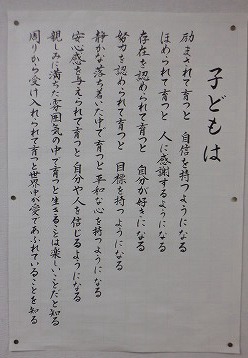 子どもは
励まされて育つと　自信を持つようになる
ほめられて育つと　人に感謝するようになる
存在を認められて育つと　自分が好きになる
努力を認められて育つと　目標を持つようになる
静かな落ち着いた中で育つと平和な心を持つようになる
安心感を与えられて育つと　自分や人を信じるようになる
親しみに満ちた雰囲気の中で育つと生きることは楽しいことだと知る
周りから受け入れられて育つと世界中が愛であふれていることを知る